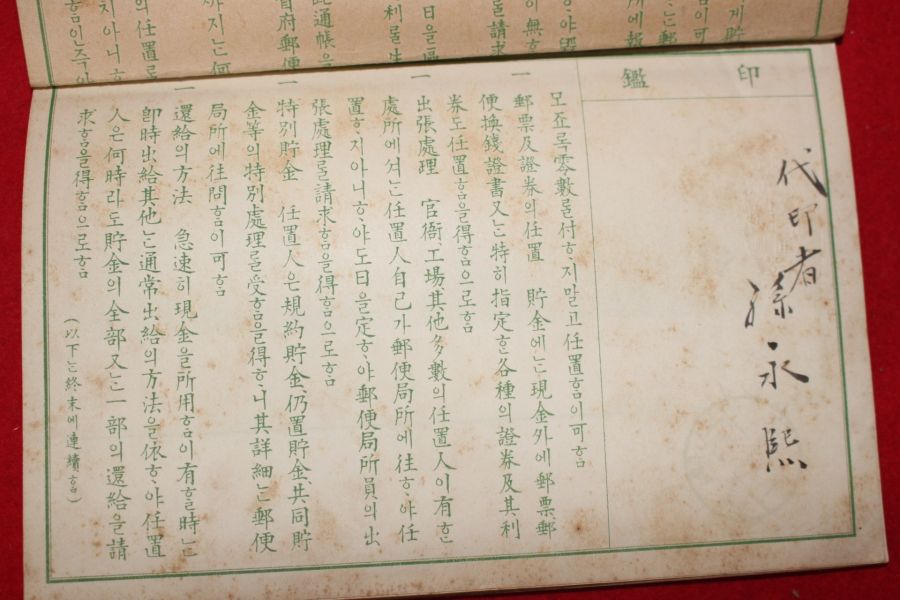 印鑑
代印者
孫永熙
모죠록零數ᄅᆞᆯ付ᄒᆞ지말고任置ᄒᆞᆷ이可ᄒᆞᆷ
一 郵票及證券의任置 貯金에ᄂᆞᆫ現金外에郵票郵
便換錢證書又ᄂᆞᆫ特히指定ᄒᆞᆫ各種의證券及其利
券도任置ᄒᆞᆷ을得ᄒᆞᆷ으로ᄒᆞᆷ
一 出張處理 官衙、工場其他多數의任置人이有ᄒᆞᆫ
處所에셔ᄂᆞᆫ任置人自己가郵便局所에往ᄒᆞ야任
置ᄒᆞ지아니ᄒᆞ야도日을定ᄒᆞ야郵便局所員의出
張處理ᄅᆞᆯ請求ᄒᆞᆷ을得ᄒᆞᆷ으로ᄒᆞᆷ
一 特別貯金 任置人은規約貯金、仍置貯金、共同貯
金等의特別處理ᄅᆞᆯ受ᄒᆞᆷ을得ᄒᆞ니其詳細ᄂᆞᆫ郵便
局所에往問ᄒᆞᆷ이可ᄒᆞᆷ
一 還給의方法 急速히現金을所用ᄒᆞᆷ이有ᄒᆞᆯ時ᄂᆞᆫ
卽時出給其他ᄂᆞᆫ通常出給의方法을依ᄒᆞ야任置
人은何時라도貯金의全部又ᄂᆞᆫ一部의還給을請
求ᄒᆞᆷ을得ᄒᆞᆷ으로ᄒᆞᆷ
(以下ᄂᆞᆫ終末에連續ᄒᆞᆷ)